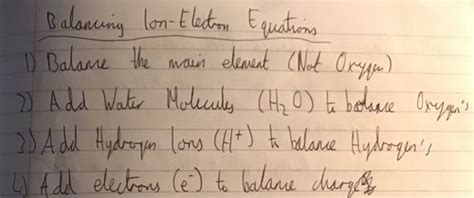 Balancing Ion-Electron Equations
1) Balance the main element (Not Oxygen)
2) Add Water Molecules (H₂O) to balance Oxygen's
3) Add Hydrogen Ions (H⁺) to balance Hydrogen's
4) Add electrons (e⁻) to balance charge